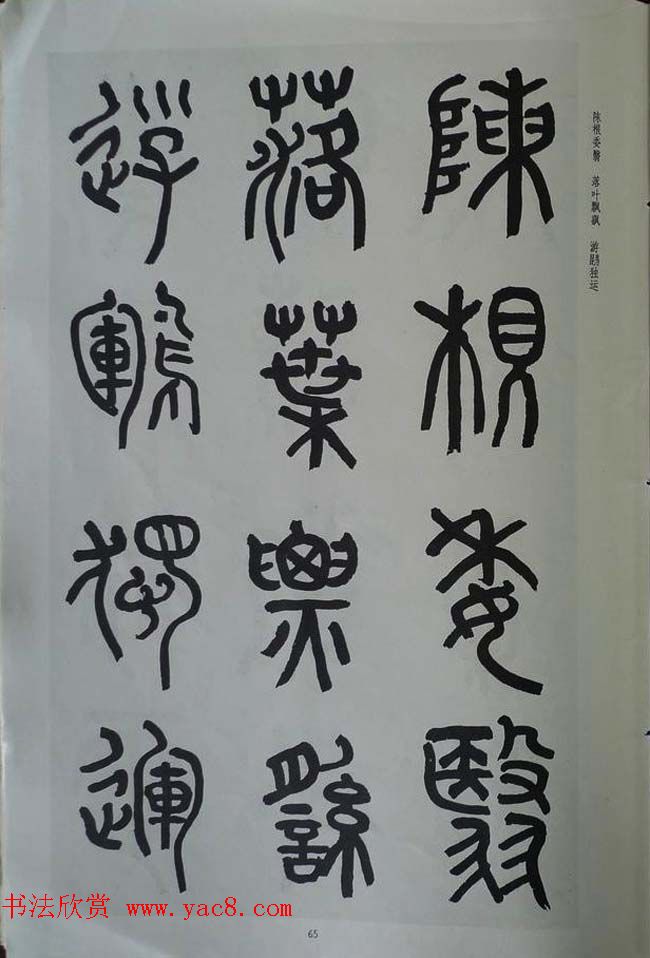 陈根委翳 落叶飘飖 游鹍独运
陳根委翳
落葉
遊鶤獨運
书法欣赏 www.yac8.com
65